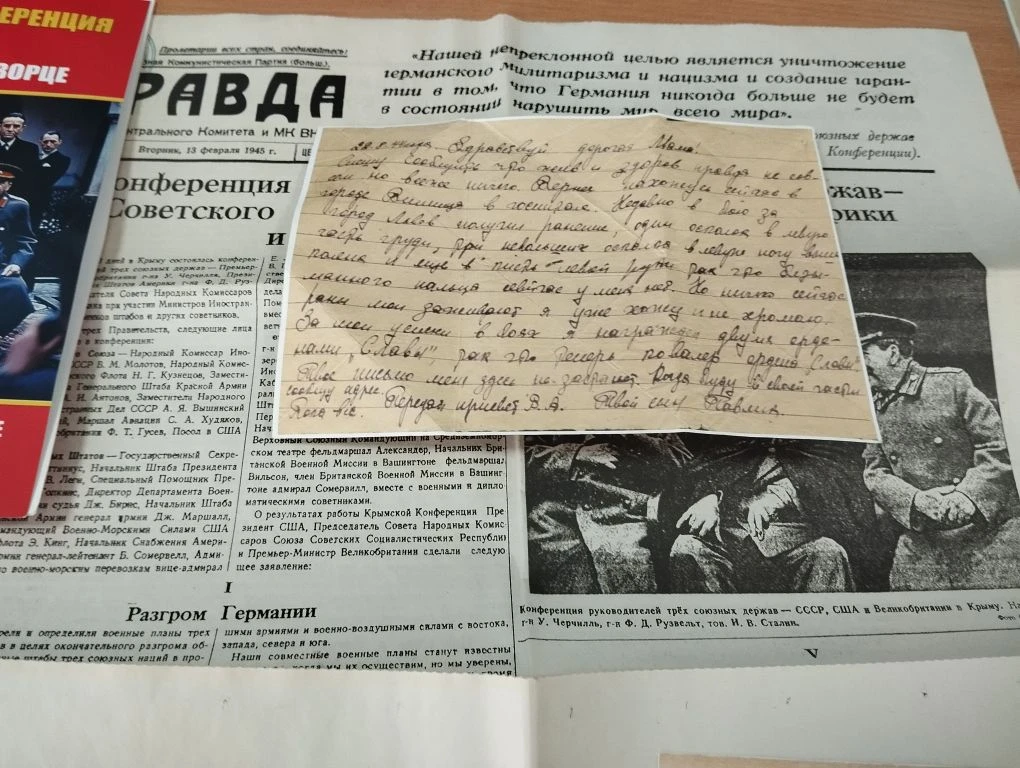 ЕРЕНЦИЯ
ВОРЦЕ
Е
Пролетарии всех стран, соединяйтесь!
ная Коммунистическая Партия (больш.).
РАВДА
нтрального Комитета и МК ВК
Вторник, 13 февраля 1945 г.
«Нашей непреклонной целью является уничтожение
германского милитаризма и нацизма и создание гаран-
тии в том, что Германия никогда больше не будет
в состоянии нарушить мир всего мира».
оюзных держав
Конференции).
онференция
Советского
И
жав—
рики
Здравствуй дорогая Мама!
Спешу сообщить что жив и здоров правда не сов-
сем но всеже ничего. Вернее нахожусь сейчас в
городе Винница в госпитале. Недавно в бою за
город Львов получил ранение, один осколок в левую
часть груди, три небольших осколка в левую ногу выше
колена и еще в кисть левой руки так что безы-
манного пальца сейчас у меня нет. Но ничего сейчас
раны мои заживают я уже хожу и не хромаю.
За мои успехи в боях я награжден двумя орде-
нами „Славы", так что теперь кавалер ордена Славы
Твое письмо меня здесь не застанет. Когда буду в своей части
сообщу адрес. Передай привет В.А. Твой сын Павлик.
дней в Крыму состоялась конферен-
ей трех союзных держав — Премьер-
ритании г-на У. Черчилля, Прези-
Штатов Америки г-на Ф. Д. Руз-
дателя Совета Народных Комиссаров
на при участии Министров Иностран-
ников штабов и других советников.
трех Правительств, следующие лица
в конференции:
о Союза — Народный Комиссар Ино-
СССР В. М. Молотов, Народный Комис-
ского Флота Н. Г. Кузнецов, Замести-
а Генерального Штаба Красной Армии
И. Антонов, Заместители Народного
странных Дел СССР А. Я. Вышинский
й, Маршал Авиации С. А. Худяков,
обритании Ф. Т. Гусев, Посол в США
ых Штатов — Государственный Секре-
ттиниус, Начальник Штаба Президента
В. Леги, Специальный Помощник Пре-
опкинс, Директор Департамента Воен-
и судья Дж. Бирнс, Начальник Штаба
Армии генерал армии Дж. Маршалл,
омандующий Военно-Морскими Силами США
флота Э. Кинг, Начальник Снабжения Амери-
рмии генерал-лейтенант Б. Сомервелл, Адми-
о военно-морским перевозкам вице-адмирал
Верховный Союзный Командующий на Средиземномор-
ском театре фельдмаршал Александер, Начальник Бри-
танской Военной Миссии в Вашингтоне фельдмаршал
Вильсон, член Британской Военной Миссии в Вашинг-
тоне адмирал Сомервилл, вместе с военными и дипло-
матическими советниками.
О результатах работы Крымской Конференции Пре-
зидент США, Председатель Совета Народных Комис-
саров Союза Советских Социалистических Республик
и Премьер-Министр Великобритании сделали следую-
щее заявление:
I
Разгром Германии
рели и определили военные планы трех
в в целях окончательного разгрома об-
ные штабы трех союзных наций в про-
шими армиями и военно-воздушными силами с востока,
запада, севера и юга.
Наши совместные военные планы станут известны
когда мы их осуществим, но мы уверены,
Конференция руководителей трёх союзных держав — СССР, США и Великобритании в Крыму.
г-н У. Черчилль, г-н Ф. Д. Рузвельт, тов. И. В. Сталин.
V